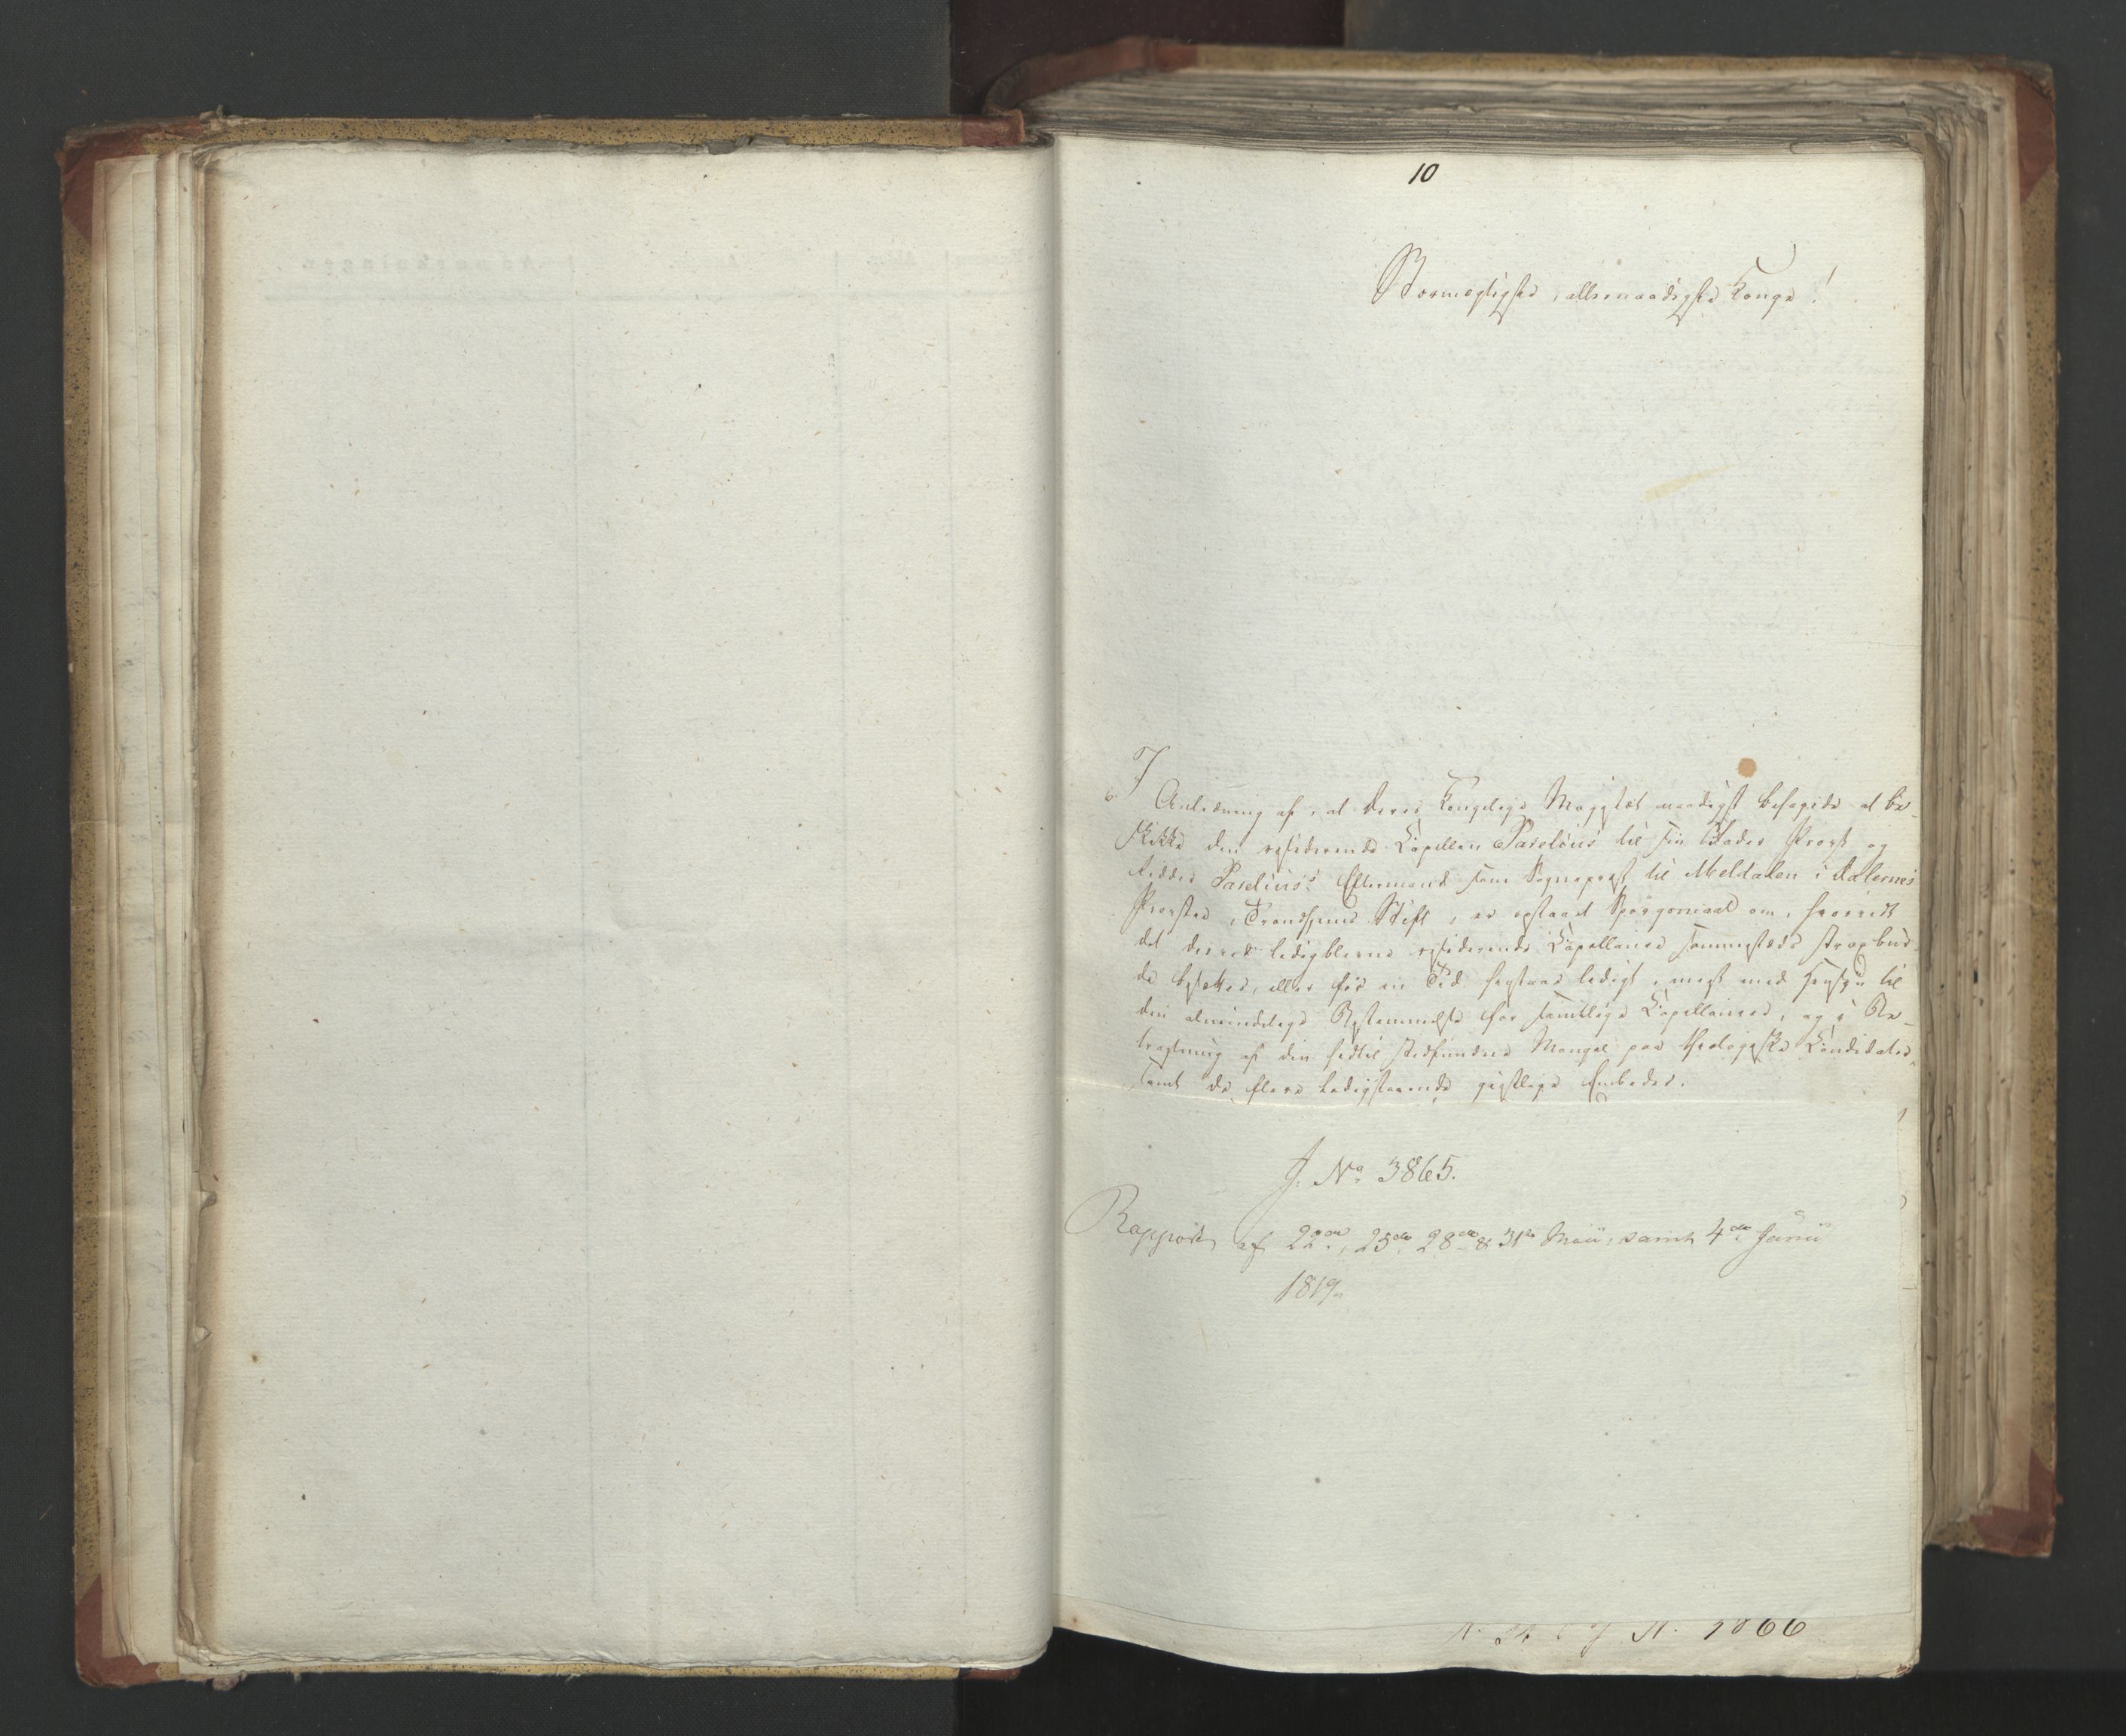 10
Stormægtigste, allernaadigste Konge!
I
6. Anledning af, at Deres Kongelige Majestæt naadigst behagede at be-
skikke den residerende Capellan Parelius til sin Fader Provst og
Ridder Parelius's Eftermand som Sognepræst til Meldalen i Dalernes
Provstie, Trondhjems Stift, er opstaaet Spørgsmaal om, hvorvidt
det derved ledigblevne residerende Capellanie sammesteds strax bur-
de besættes, eller for en Tid henstaae ledigt, med Hensyn til
den almindelige Bestemmelse for samtlige Capellanier, og i Be-
tragtning af den hidtil stedfundne Mangel paa theologiske Candidater
samt de flere ledigstaaende geistlige Embeder.
J. No 3865.
Rapporter af 22de, 25de, 28de & 31te Maii, samt 4de Junii
1819.
J. N. 3866